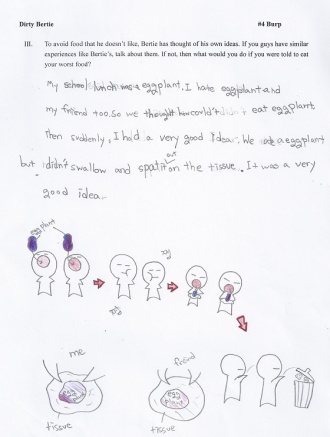 Dirty Bertie #4 Burp
III. To avoid food that he doesn't like, Bertie has thought of his own ideas. If you guys have similar
experiences like Bertie's, talk about them. If not, then what would you do if you were told to eat
your worst food?
My school lunch was eggplant. I hate eggplant and
my friend too. So we thought how couldn't eat eggplant
Then suddenly, I had a very good Idea. We eat a eggplant
but i didn't swallow and spat it out on the tissue. It was a very
good idea.
egg plant
me
egg plant
tissue
tissue